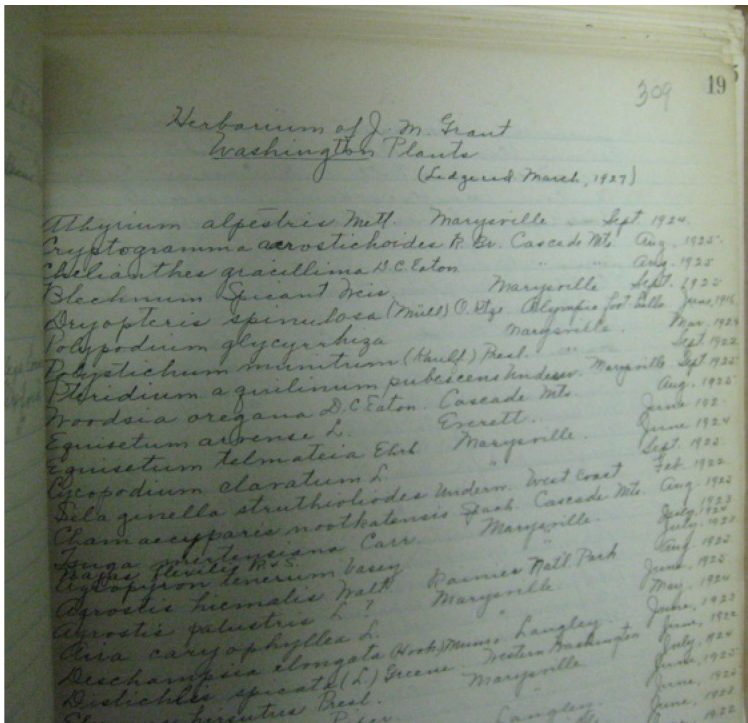 309 19
Herbarium of J. M. Grant
Washington Plants
(Ledgered March, 1927)
Athyrium alpestris Mett. Marysville Sept. 1924.
Cryptogramma acrostichoides R. Br. Cascade Mts Aug. 1925.
Cheilanthes gracillima D.C. Eaton " " Aug. 1925
Blechnum Spicant Weis Marysville Sept. 1922
Dryopteris spinulosa (Müll) O. Ktze Olympic foot hills June, 1916.
Polypodium glycyrrhiza Marysville. Mar. 1924
Polystichum munitum (Kaulf) Presl. " Sept. 1922
Pteridium aquilinum pubescens Underw. Marysville Sept 1925
Woodsia oregana D.C Eaton. Cascade Mts Aug. 1925
Equisetum arvense L. Everett. June 192
Equisetum telmateia Ehrh Marysville. June 1924
Lycopodium clavatum L " Sept. 1922
Selaginella struthioliodes Underw. West Coast Feb. 1922
Chamaecyparis nootkatensis Spach. Cascade Mts. Aug. 1925
Tsuga mertensiana Carr. Marysville.
Najas flexilis R & S July
Agropyron tenerum Vasey Aug.
Agrostis hiemalis Walt Rainier Natl Park June, 1925
Agrostis palustris L ? Marysville May. 1924
Aira caryophyllea L. " June, 1922
Deschampsia elongata (Hook) Munro Langley. June, 1922
Distichlis spicata (L) Greene. Western Washington July,
Elymus hirsutus Presl. Marysville June,
Piper. Langley June,